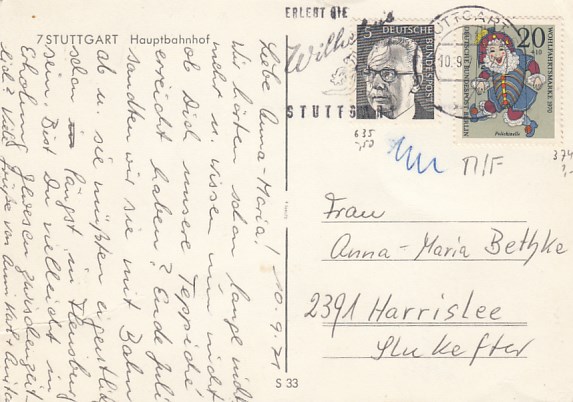 7 STUTTGART Hauptbahnhof
ERLEBT DIE
Wilhelma
STUTTGART
STUTTGART
10.9.
5
DEUTSCHE BUNDESPOST
20
+10
WOHLFAHRTSMARKE 1970
DEUTSCHE BUNDESPOST BERLIN
Polichinelle
635
-,50
M/F
374
10.9.71
Liebe Anna-Maria!
Wir hörten schon lange nichts
mehr u. wissen nun nicht
ob Dich unsere Teppiche
erreicht haben? Ende Juli
sandten wir sie mit Bahn
ab u. sie müßten eigentlich
schon längst in Flensburg
sein. Bist Du vielleicht in
Erholung gewesen zwischenzeit-
lich? Viele Grüße von
Frau
Anna-Maria Bethke
2391 Harrislee
S 33